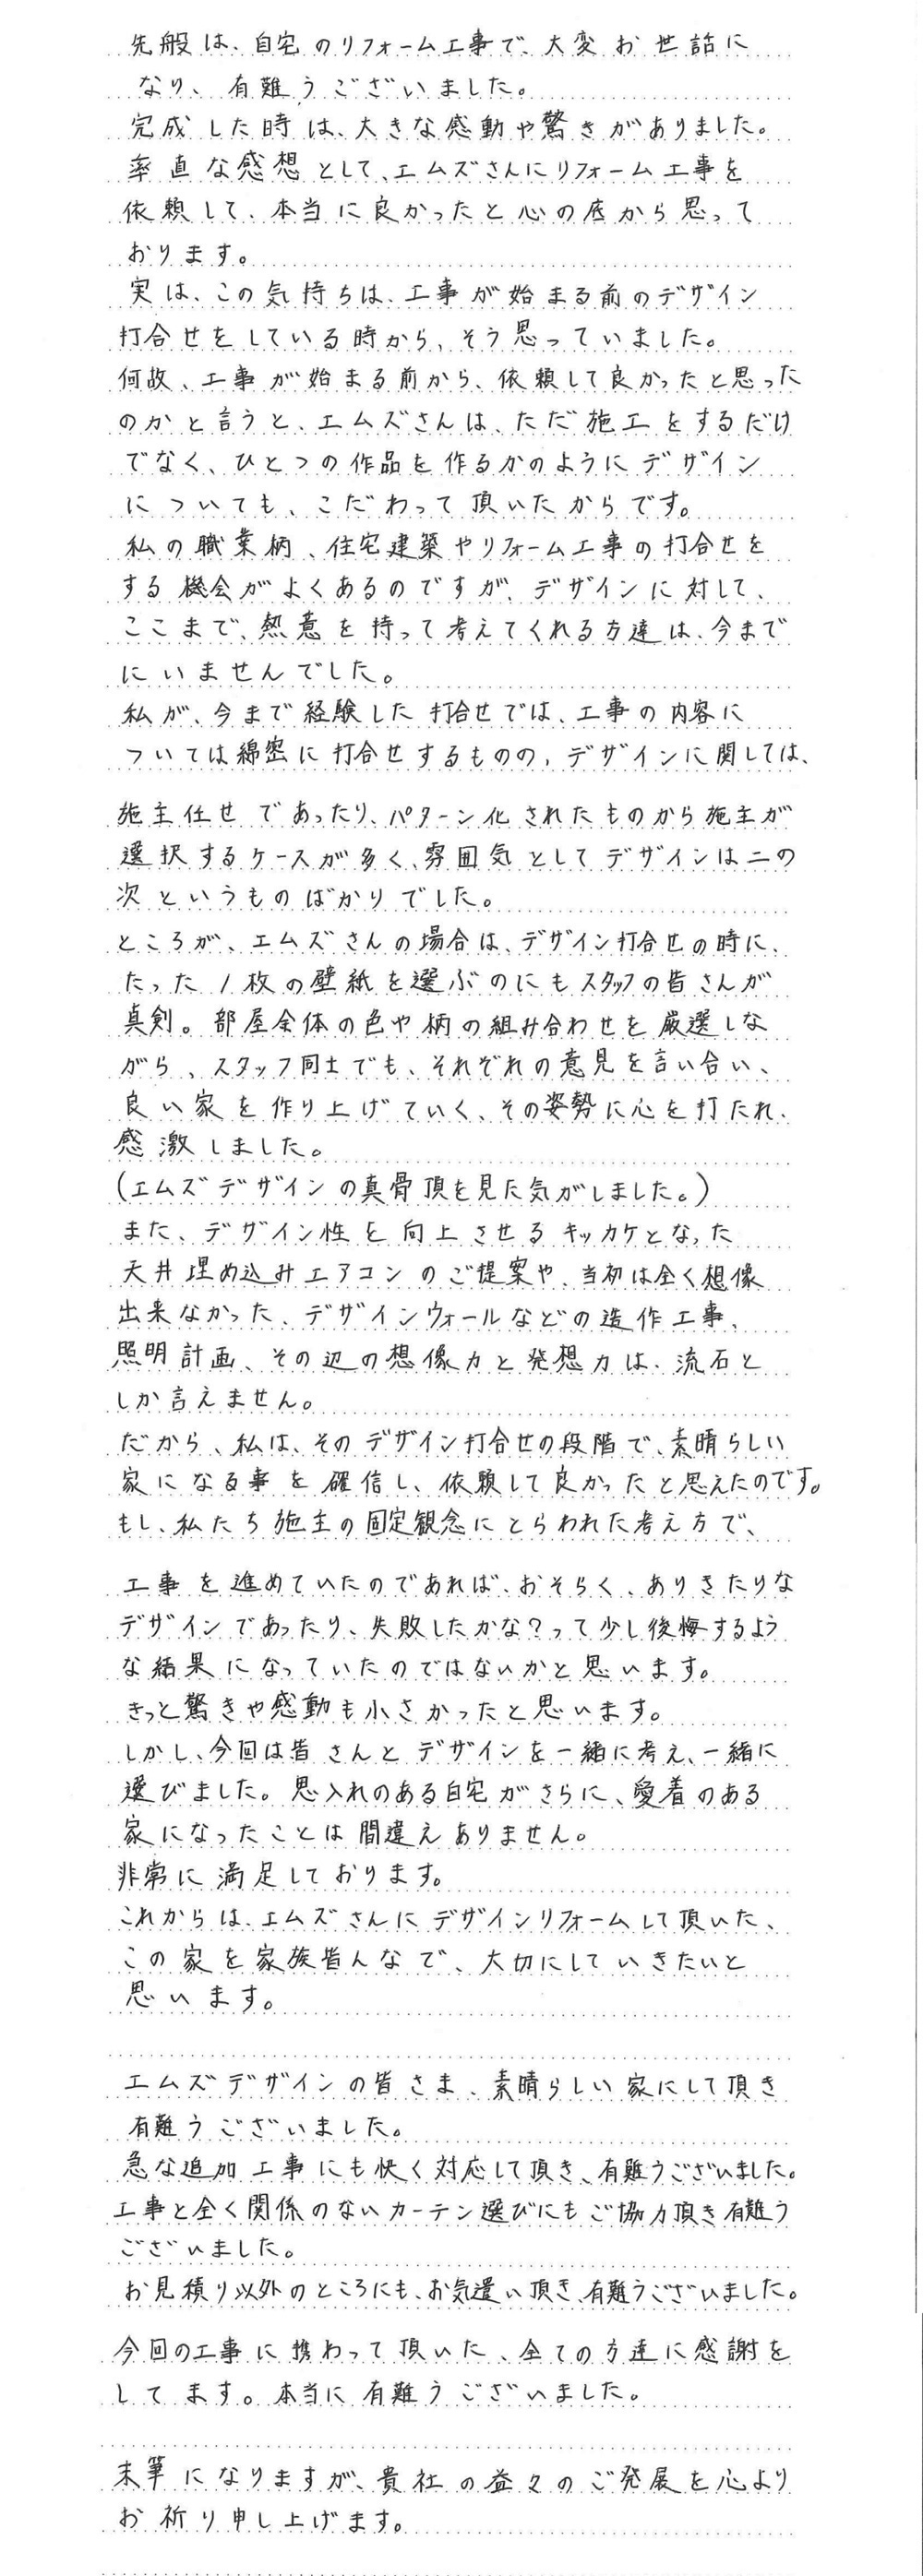 先般は、自宅のリフォーム工事で、大変お世話に
なり、有難うございました。
完成した時は、大きな感動や驚きがありました。
率直な感想として、エムズさんにリフォーム工事を
依頼して、本当に良かったと心の底から思って
おります。
実は、この気持ちは、工事が始まる前のデザイン
打合せをしている時から、そう思っていました。
何故、工事が始まる前から、依頼して良かったと思った
のかと言うと、エムズさんは、ただ施工をするだけ
でなく、ひとつの作品を作るかのようにデザイン
についても、こだわって頂いたからです。
私の職業柄、住宅建築やリフォーム工事の打合せを
する機会がよくあるのですが、デザインに対して、
ここまで、熱意を持って考えてくれる方達は、今まで
にいませんでした。
私が、今まで経験した打合せでは、工事の内容に
ついては綿密に打合せするものの、デザインに関しては、
施主任せであったり、パターン化されたものから施主が
選択するケースが多く、雰囲気としてデザインは二の
次というものばかりでした。
ところが、エムズさんの場合は、デザイン打合せの時に、
たった1枚の壁紙を選ぶのにもスタッフの皆さんが
真剣。部屋全体の色や柄の組み合わせを厳選しな
がら、スタッフ同士でも、それぞれの意見を言い合い、
良い家を作り上げていく、その姿勢に心を打たれ、
感激しました。
(エムズデザインの真骨頂を見た気がしました。)
また、デザイン性を向上させるキッカケとなった
天井埋め込みエアコンのご提案や、当初は全く想像
出来なかった、デザインウォールなどの造作工事、
照明計画、その辺の想像力と発想力は、流石と
しか言えません。
だから、私は、そのデザイン打合せの段階で、素晴らしい
家になる事を確信し、依頼して良かったと思えたのです。
もし、私たち施主の固定観念にとらわれた考え方で、
工事を進めていたのであれば、おそらく、ありきたりな
デザインであったり、失敗したかな?って少し後悔するよう
な結果になっていたのではないかと思います。
きっと驚きや感動も小さかったと思います。
しかし、今回は皆さんとデザインを一緒に考え、一緒に
選びました。思入れのある自宅がさらに、愛着のある
家になったことは間違えありません。
非常に満足しております。
これからは、エムズさんにデザインリフォームして頂いた、
この家を家族皆んなで、大切にしていきたいと
思います。
エムズデザインの皆さま、素晴らしい家にして頂き
有難うございました。
急な追加工事にも快く対応して頂き、有難うございました。
工事と全く関係のないカーテン選びにもご協力頂き有難う
ございました。
お見積り以外のところにも、お気遣い頂き、有難うございました。
今回の工事に携わって頂いた、全ての方達に感謝を
してます。本当に有難うございました。
末筆になりますが、貴社の益々のご発展を心より
お祈り申し上げます。